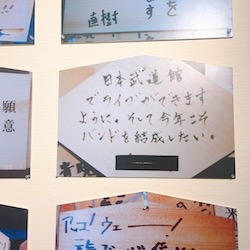 を
す
直樹
日本武道館
でライブができます
ように。そして今年こそ
バンドを結成したい。
願意
アッコ!ウェー!